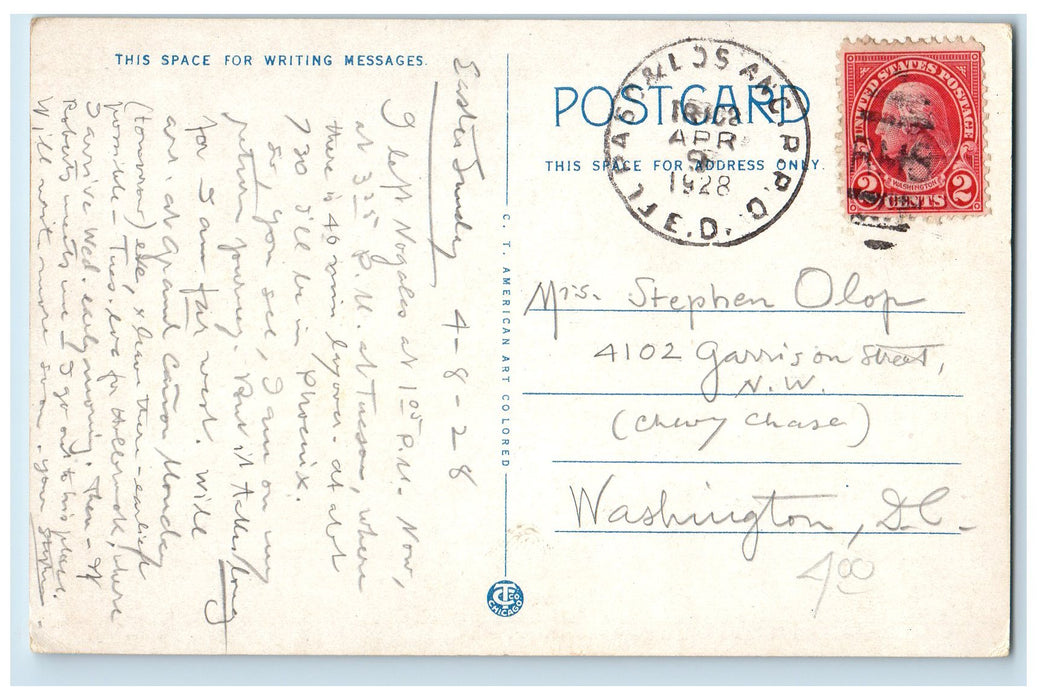 THIS SPACE FOR WRITING MESSAGES.
Easter Sunday 4-8-28
I left Nogales at 1 05 P.M. Now,
at 3 25 P.M. at Tucson, where
there is 40 min layover. at abt
7 30 I'll be in Phoenix.
So, you see, I am on my
return journey. But it takes long
for I am far west. Will
arr. at Grand Canon Monday
(tomorrow) & leave there - earliest
possible - Tues. eve for
I arrive Wed. early morning. Then - if
Roberts meets me - I go out to his place.
Will write more soon. your Stephen.
C. T. AMERICAN ART COLORED
CTCo
CHICAGO
POSTCARD
THIS SPACE FOR ADDRESS ONLY.
EL PASO & LOS ANG. R.P.O.
E.D.
APR
9
1928
UNITED STATES POSTAGE
WASHINGTON
2 CENTS 2
Mrs. Stephen Olop
4102 Garrison Street,
N.W.
(Chevy Chase)
Washington, D.C.
4 00